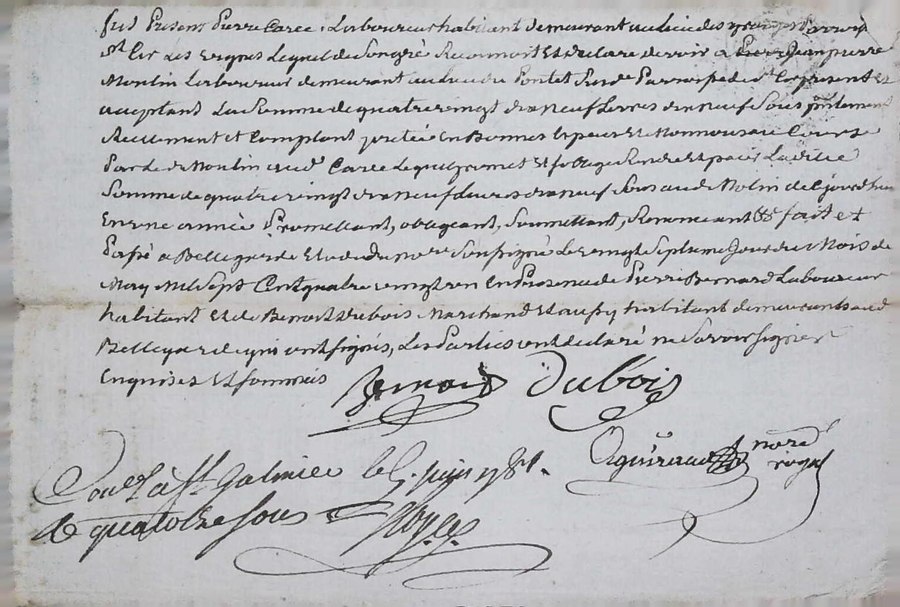 fut Présent Pierre Carée Laboureur habitant demeurant au lieu des
St Cir Les vignes Lequel de Son gré Reconnoit Et declare devoir a Jean pierre
Moulin Laboureur demeurant au lieu du Pontet Sus de Parroisse de St Cir présent Et
acceptant La Somme de quatre vingt dix neuf Livres dix neuf Sols
Reellement et Comptant prêtée En Bonnes Especes Et Monnoyes au Cours
Par Le de Moulin aud. Carée Lequel promet Et s'oblige Rendre Et paier Ladite
Somme de quatre vingt dix neuf Livres dix neuf Sous aud Molin de Ce jourd'hui
En une année Promettant, obligeant, Soumettant, Renonceant &&& fait et
Passé a Bellegarde Etude du nore Soussigné Le vingt Septieme Jour du Mois de
May Mil Sept Cent quatre vingt un En Présence de Pierre Bernard Laboureur
habitant Et de Benoit Dubois Marchand Et aussy habitant demeurants aud
Bellegarde qui ont signés, Les Parties ont declaré ne Savoir signer
Enquises Et sommées
Bernard Dubois
nore
royal
Con.lé à St Galmier le 5. juin 1781.
quatorze sous